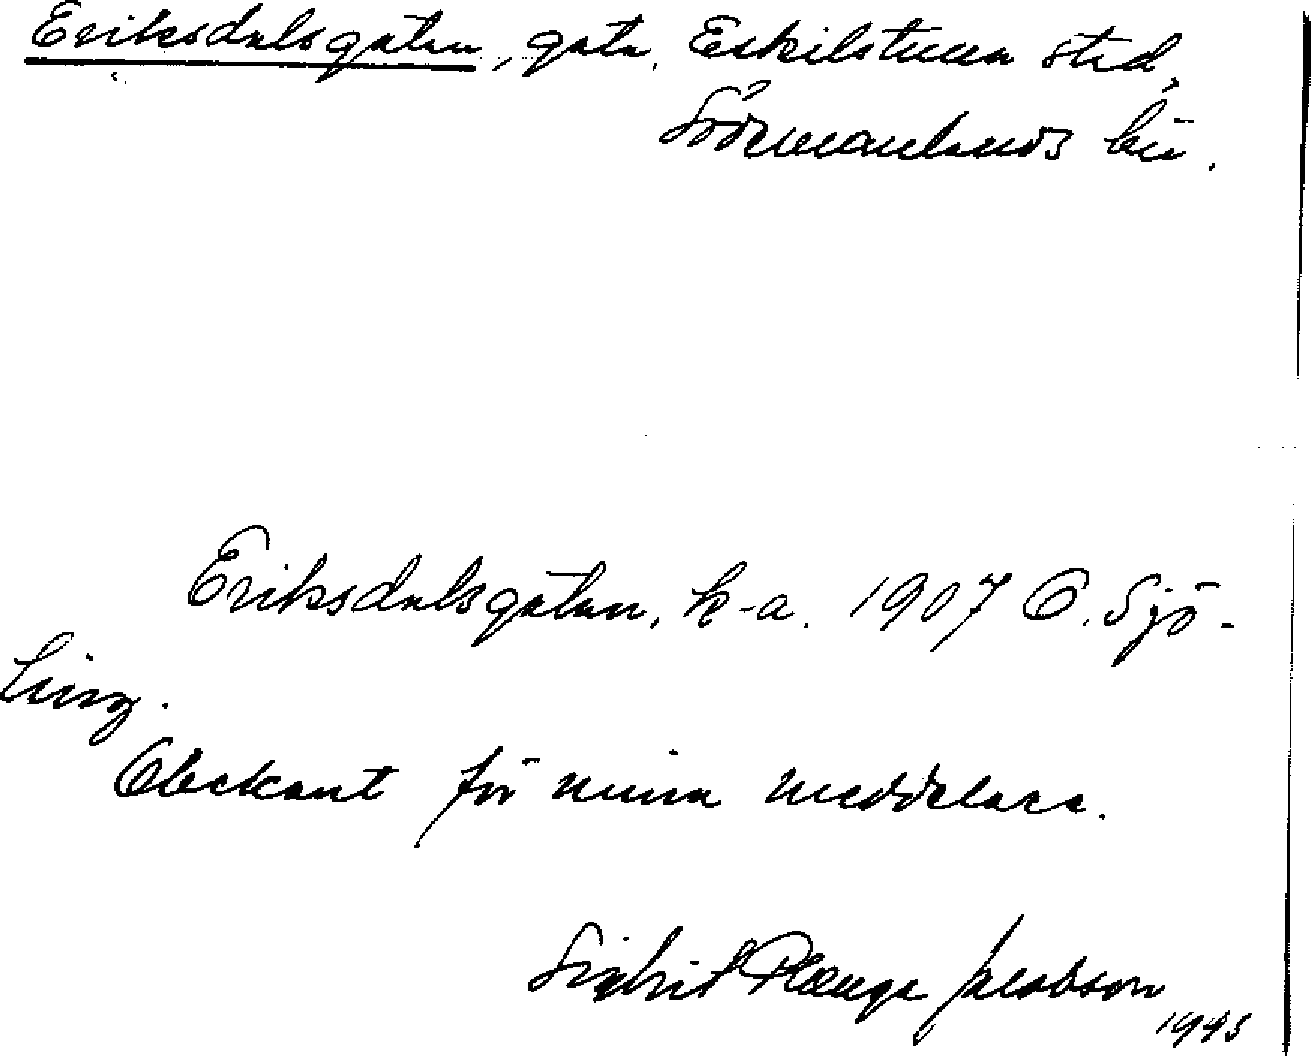 Eriksdalsgatan, gata, Eskilstuna stad,
Södermanlands län.
Eriksdalsgatan, k-a. 1907 C. Sjö-
ling.
Obekant för mina meddelare.
Sigbrit Plænge Jacobson
1945